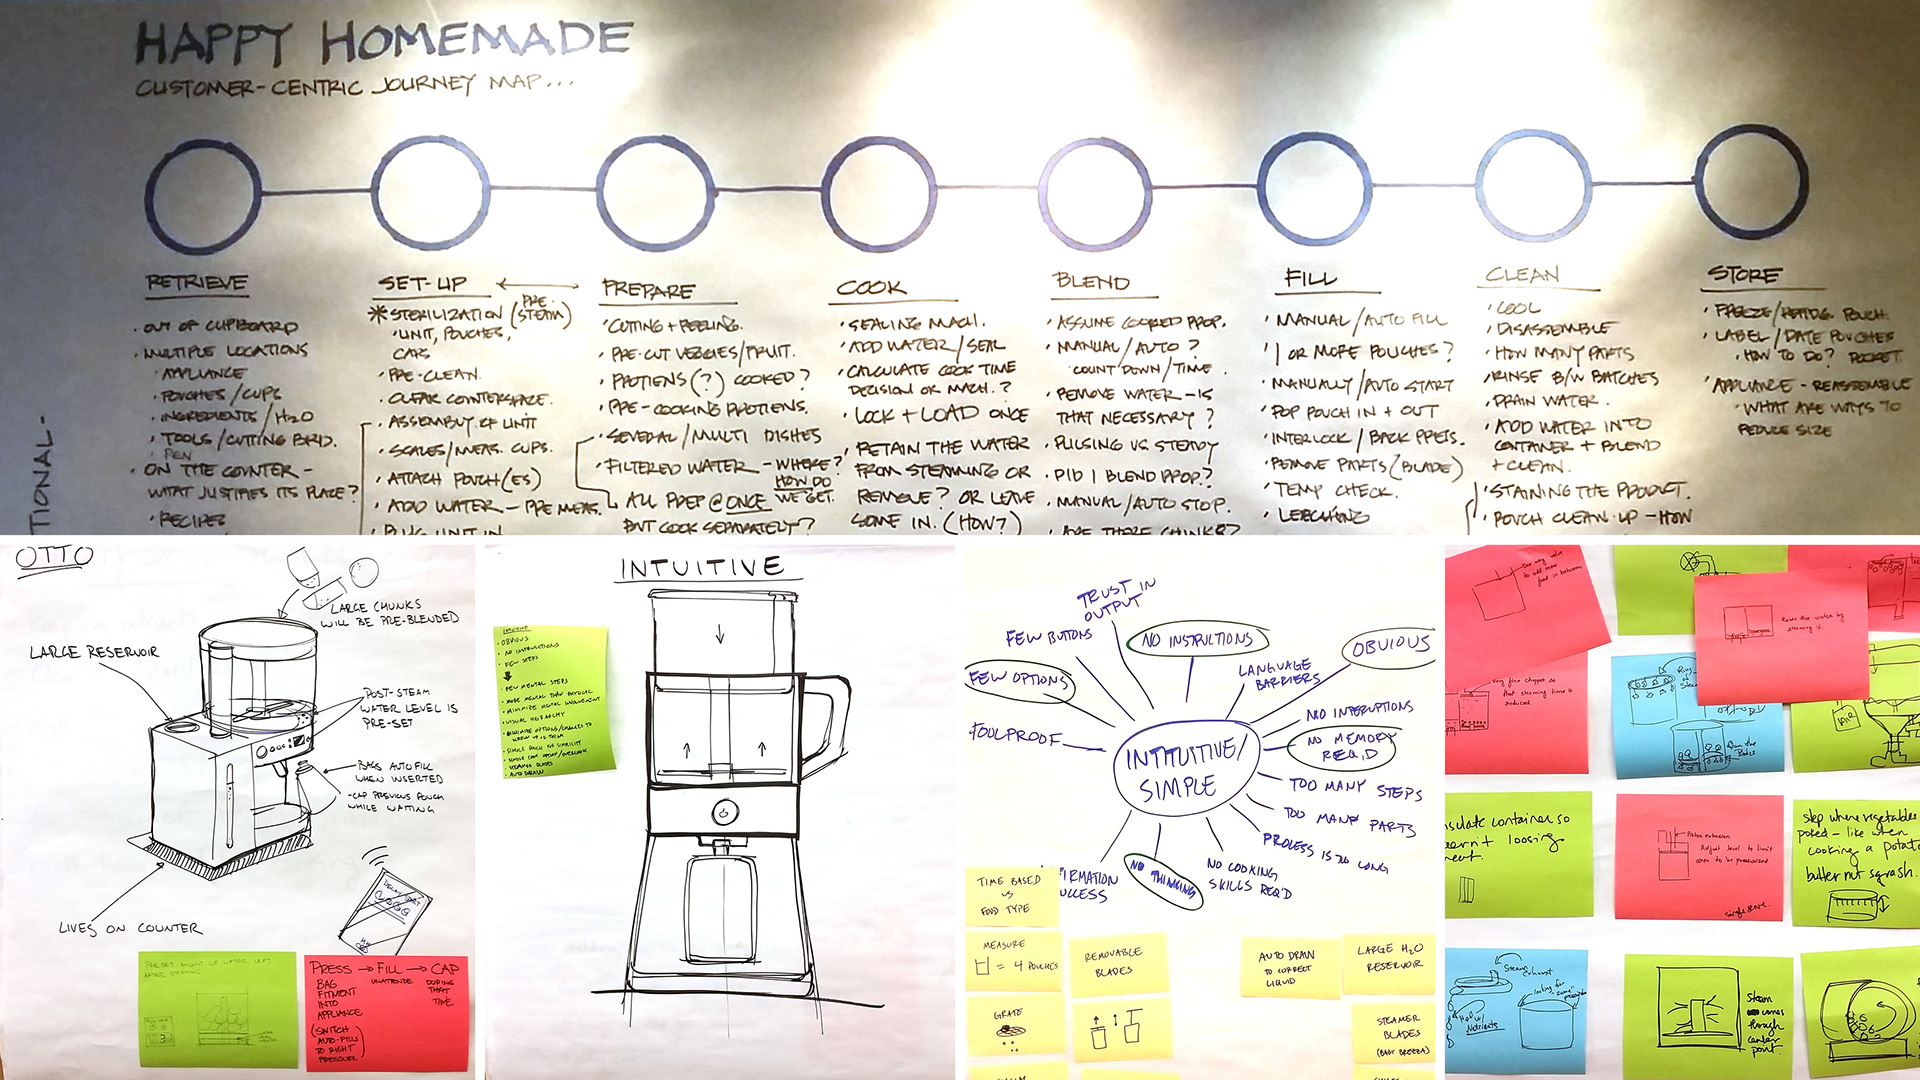 HAPPY HOMEMADE
CUSTOMER-CENTRIC JOURNEY MAP...
TIONAL-
RETRIEVE
• OUT OF CUPBOARD
• MULTIPLE LOCATIONS
• APPLIANCE
• POUCHES/CUPS
• INGREDIENTS/H2O
• TOOLS/CUTTING BRD.
• PEN
• ON THE COUNTER -
WHAT JUSTIFIES ITS PLACE?
• RECIPES
SET-UP
* STERILIZATION (PRE-STEAM)
• UNIT, POUCHES,
CAPS
• PRE-CLEAN.
• CLEAR COUNTERSPACE.
• ASSEMBLY OF UNIT
• SCALES/MEAS. CUPS.
• ATTACH POUCH(ES)
• ADD WATER - PRE MEAS.
• PLUG UNIT IN
PREPARE
• CUTTING + PEELING.
• PRE-CUT VEGGIES/FRUIT.
• PROTIENS(?) COOKED?
• PRE-COOKING PROTIENS.
• SEVERAL/MULTI DISHES
• FILTERED WATER - WHERE?
HOW DO
WE GET.
ALL PREP @ ONCE
BUT COOK SEPARATELY?
COOK
• SEALING MACH.
• ADD WATER/SEAL
• CALCULATE COOK TIME
DECISION OR MACH.?
• LOCK + LOAD ONCE
• RETAIN THE WATER
FROM STEAMING OR
REMOVE? OR LEAVE
SOME IN. (HOW?)
BLEND
• ASSUME COOKED PROP.
• MANUAL/AUTO?
COUNT DOWN/TIME.
• REMOVE WATER - IS
THAT NECESSARY?
• PULSING VS STEADY
• DID I BLEND PROP.?
• MANUAL/AUTO STOP.
• ARE THERE CHUNKS?
FILL
• MANUAL/AUTO FILL
• 1 OR MORE POUCHES?
• MANUALLY/AUTO START
• POP POUCH IN + OUT
• INTERLOCK/BACK PRES.
• REMOVE PARTS (BLADE)
• TEMP CHECK.
• LEACHING
CLEAN
• COOL
• DISASSEMBLE
• HOW MANY PARTS
• RINSE B/W BATCHES
• DRAIN WATER.
• ADD WATER INTO
CONTAINER + BLEND
+ CLEAN.
• STAINING THE PRODUCT.
• POUCH CLEAN-UP - HOW
STORE
• FREEZE/REFRIG. POUCH
• LABEL/DATE POUCHES
• HOW TO DO? POCKET.
• APPLIANCE - REASSEMBLE
• WHAT ARE WAYS TO
REDUCE SIZE
OTTO
LARGE CHUNKS
WILL BE PRE-BLENDED
LARGE RESERVOIR
POST-STEAM
WATER LEVEL IS
PRE-SET
• BAGS AUTO FILL
WHEN INSERTED
-CAP PREVIOUS POUCH
WHILE WAITING
LIVES ON COUNTER
PRESS → FILL → CAP
BAG
FITMENT
INTO
APPLIANCE
UNATTENDED
DURING
THAT
TIME
(SWITCH
AUTO-FILLS
TO RIGHT
PRESSURE)
INTUITIVE
• OBVIOUS
• NO INSTRUCTIONS
• FEW STEPS
• FEW MENTAL STEPS
• MORE MENTAL THAN PHYSICAL
• MINIMIZE MENTAL INVOLVEMENT
• VISUAL HIERARCHY
• AUTO DRAIN
TRUST IN
OUTPUT
FEW BUTTONS
NO INSTRUCTIONS
OBVIOUS
FEW OPTIONS
LANGUAGE
BARRIERS
NO INTERUPTIONS
FOOLPROOF
INTUITIVE/
SIMPLE
NO MEMORY
REQ'D
TOO MANY STEPS
TOO MANY PARTS
PROCESS IS TOO LONG
NO COOKING
SKILLS REQ'D
NO THINKING
FIRMATION
UCCESS
TIME BASED
VS
FOOD TYPE
MEASURE
= 4 POUCHES
REMOVABLE
BLADES
AUTO DRAIN
TO CORRECT
LIQUID
LARGE H2O
RESERVOIR
GRATE
STEAMER
BLADES
(BABY BREEZA)
One way valve
to add more
food in between
Reuse the water by
steaming it.
Very fine chopped so
that steaming time is
reduced
sulate container so
doesn't loosing
heat.
Piston extrusion
Adjust level to limit
area to be pressurized
single serve.
step where vegetables
poked - like when
cooking a potato
butternut squash.
Steam
Exhaust
H2O w/
Nutrients
Steam
comes
through
center
point.